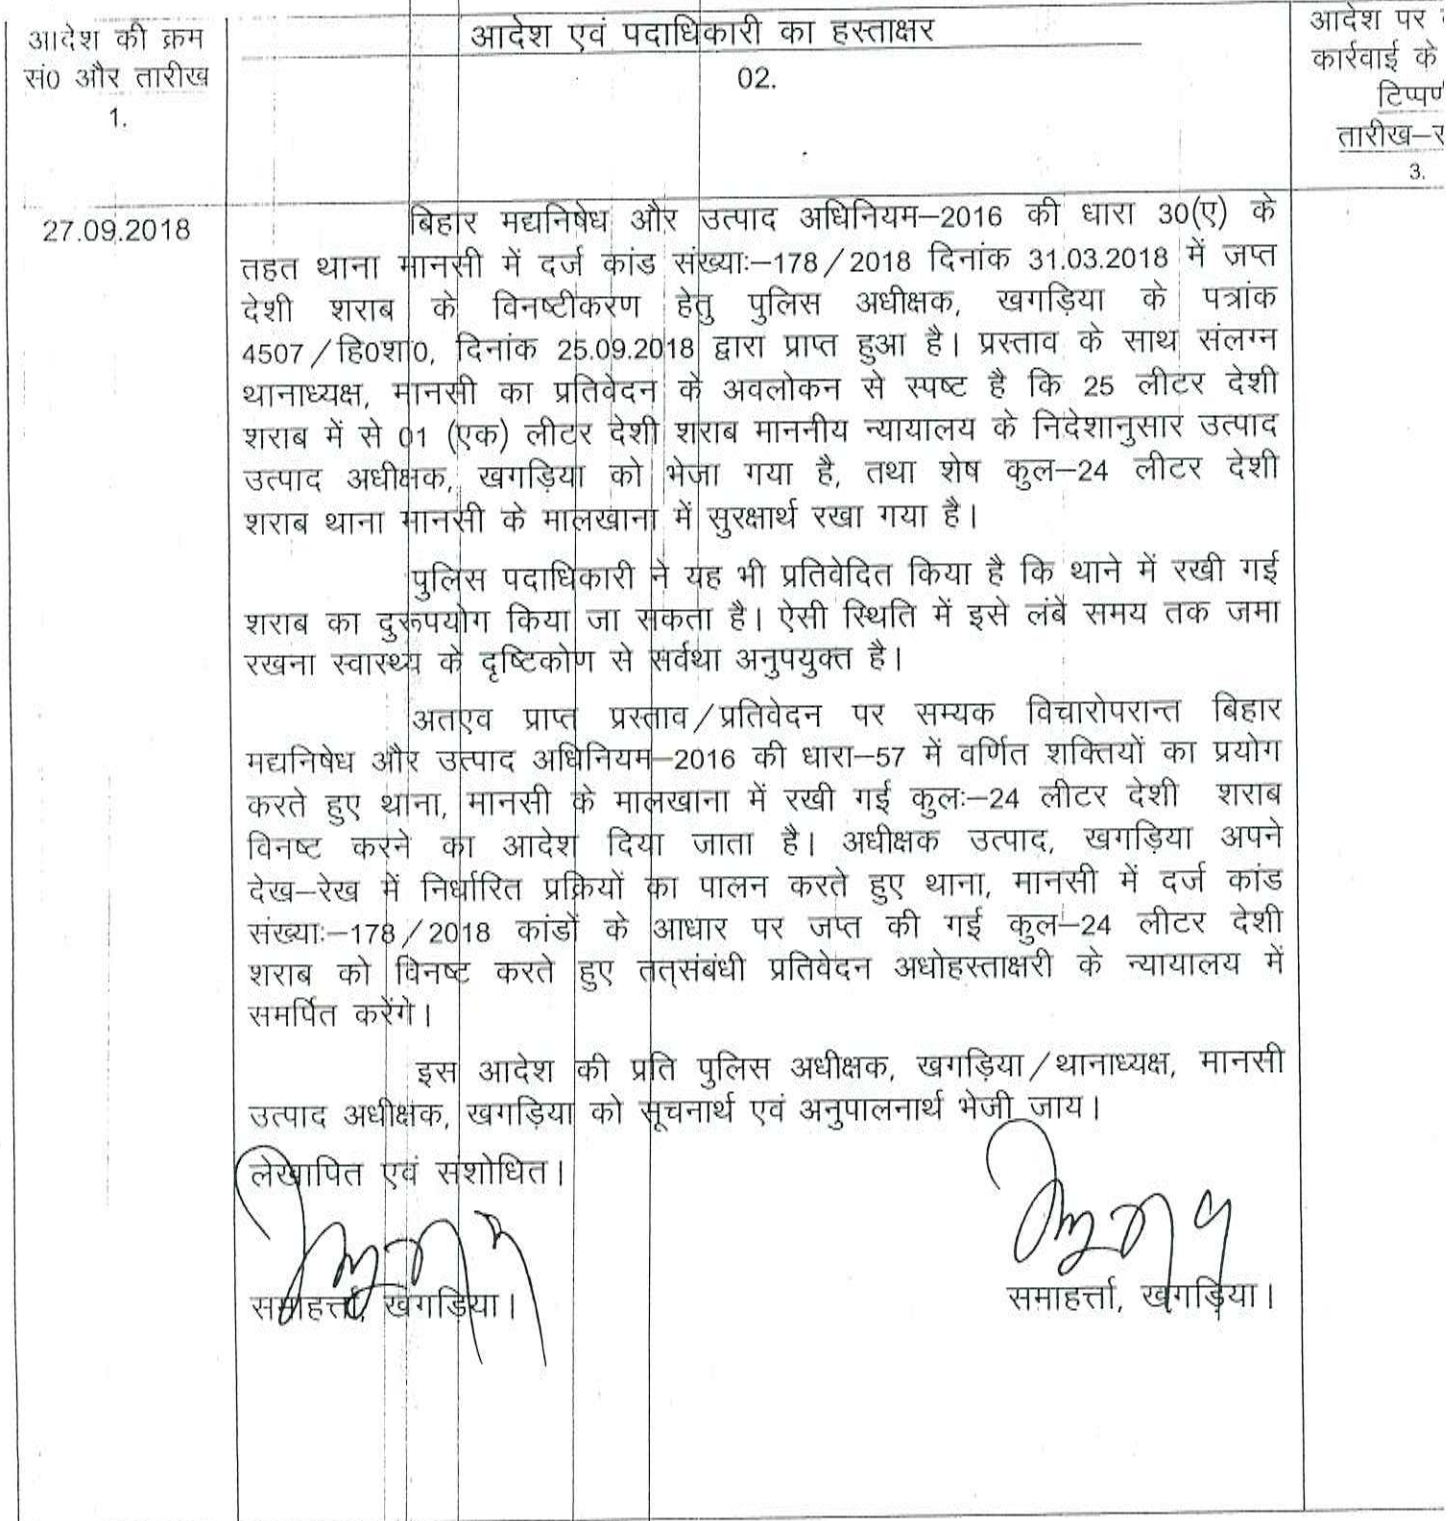 आदेश की क्रम
सं0 और तारीख
1.
आदेश एवं पदाधिकारी का हस्ताक्षर
02.
आदेश पर
कार्रवाई के
तारीख–
3.
27.09.2018
बिहार मद्यनिषेध और उत्पाद अधिनियम–2016 की धारा 30(ए) के
तहत थाना मानसी में दर्ज कांड संख्याः–178/2018 दिनांक 31.03.2018 में जप्त
देशी शराब के विनष्टीकरण हेतु पुलिस अधीक्षक, खगड़िया के पत्रांक
4507/हि0शा0, दिनांक 25.09.2018 द्वारा प्राप्त हुआ है। प्रस्ताव के साथ संलग्न
थानाध्यक्ष, मानसी का प्रतिवेदन के अवलोकन से स्पष्ट है कि 25 लीटर देशी
शराब में से 01 (एक) लीटर देशी शराब माननीय न्यायालय के निदेशानुसार उत्पाद
उत्पाद अधीक्षक, खगड़िया को भेजा गया है, तथा शेष कुल–24 लीटर देशी
शराब थाना मानसी के मालखाना में सुरक्षार्थ रखा गया है।
पुलिस पदाधिकारी ने यह भी प्रतिवेदित किया है कि थाने में रखी गई
शराब का दुरूपयोग किया जा सकता है। ऐसी स्थिति में इसे लंबे समय तक जमा
रखना स्वास्थ्य के दृष्टिकोण से सर्वथा अनुपयुक्त है।
अतएव प्राप्त प्रस्ताव/प्रतिवेदन पर सम्यक विचारोपरान्त बिहार
मद्यनिषेध और उत्पाद अधिनियम–2016 की धारा–57 में वर्णित शक्तियों का प्रयोग
करते हुए थाना, मानसी के मालखाना में रखी गई कुलः–24 लीटर देशी शराब
विनष्ट करने का आदेश दिया जाता है। अधीक्षक उत्पाद, खगड़िया अपने
देख–रेख में निर्धारित प्रक्रियों का पालन करते हुए थाना, मानसी में दर्ज कांड
संख्याः–178/2018 कांडों के आधार पर जप्त की गई कुल–24 लीटर देशी
शराब को विनष्ट करते हुए तत्संबंधी प्रतिवेदन अधोहस्ताक्षरी के न्यायालय में
समर्पित करेंगे।
इस आदेश की प्रति पुलिस अधीक्षक, खगड़िया/थानाध्यक्ष, मानसी
उत्पाद अधीक्षक, खगड़िया को सूचनार्थ एवं अनुपालनार्थ भेजी जाय।
लेखापित एवं संशोधित।
समाहर्त्ता, खगड़िया।
समाहर्त्ता, खगड़िया।